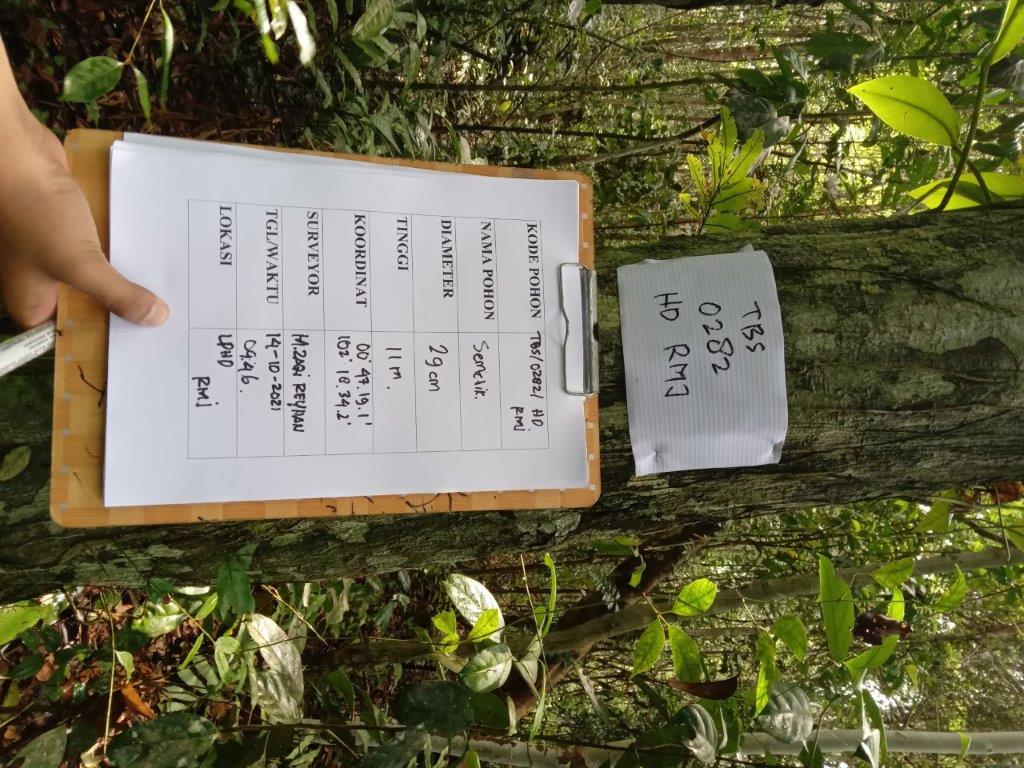 TBS
0282
HD RMJ
KODE POHON TBS/0282/ HD
RMJ
NAMA POHON
DIAMETER 29 cm
TINGGI 11 m.
KOORDINAT 00° 47. 19. 1'
102° 18. 34. 2'
SURVEYOR M. ZAQI REYHAN
TGL/WAKTU 14-10-2021
09.46.
LOKASI LPHD
RMJ